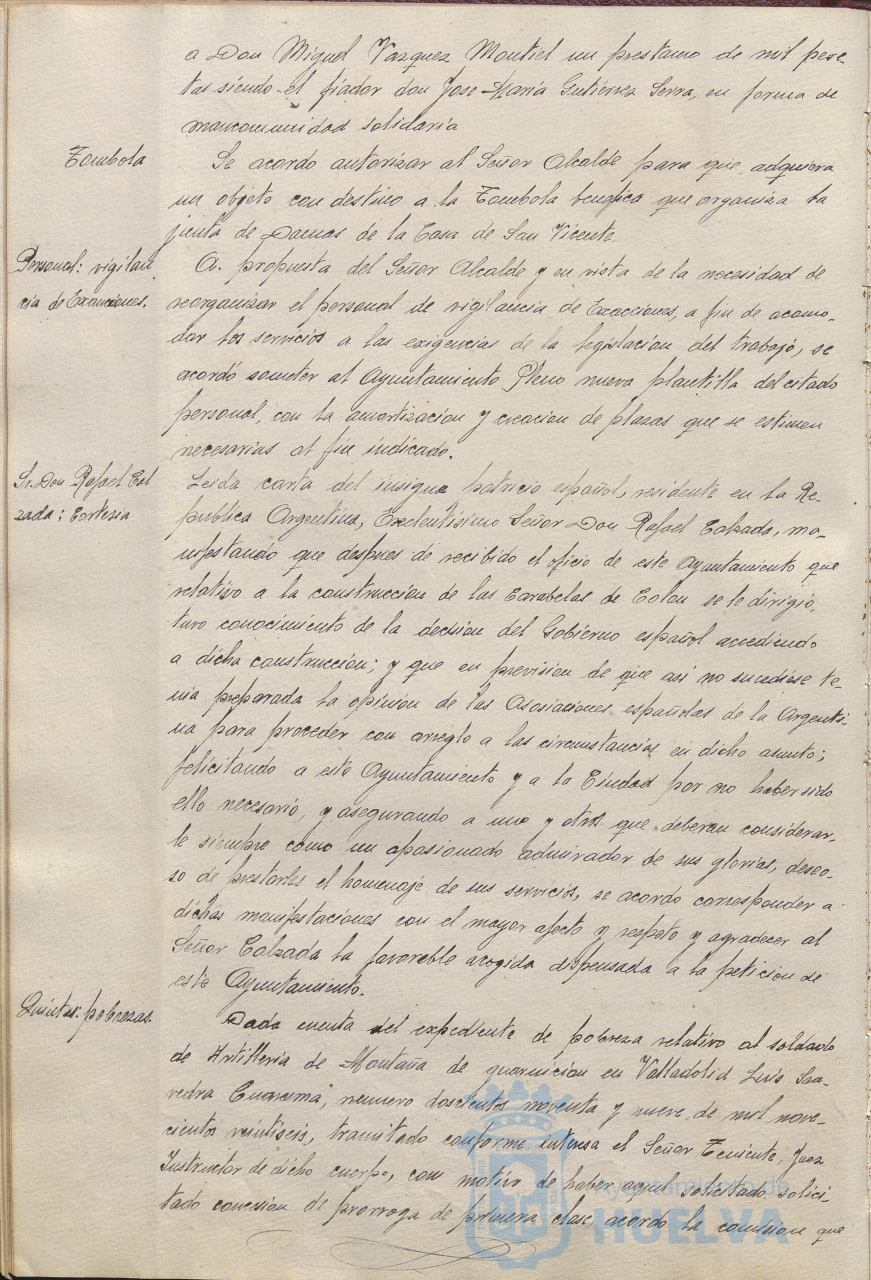 a Don Miguel Vazquez Montiel un prestamo de mil pese-
tas siendo el fiador don Jose Maria Gutiérrez Serra, en forma de
mancomunidad solidaria
Tombola
Se acordo autorizar al Señor Alcalde para que adquiera
un objeto con destino a la Tombola benefica que organiza la
junta de Damas de la Casa de San Vicente
Personal: vigilan
cia de Exacciones.
A propuesta del Señor Alcalde y en vista de la necesidad de
reorganizar el personal de vigilancia de Exacciones, a fin de acomo-
dar los servicios a las exigencias de la legislacion del trabajo, se
acordó someter al Ayuntamiento Pleno nueva plantilla del citado
personal, con la amortizacion y creacion de plazas que se estimen
necesarias al fin indicado.
Sr. Don Rafael Cal
zada: Cortesia
Leida carta del insigne patricio español, residente en la Re-
publica Argentina, Excelentisimo Señor Don Rafael Calzada, ma-
nifestando que despues de recibido el oficio de este Ayuntamiento que
relativo a la construccion de las Carabelas de Colon se le dirigió,
tuvo conocimiento de la decision del Gobierno español accediendo
a dicha construccion; y que en prevision de que así no sucediese te-
nia preparada la opinion de las Asociaciones españolas de la Argenti-
na para proceder con arreglo a las circunstancias en dicho asunto;
felicitando a este Ayuntamiento y a la Ciudad por no haber sido
ello necesario, y asegurando a uno y otra que deberan considerar-
le siempre como un apasionado admirador de sus glorias, deseo-
so de prestarles el homenaje de sus servicios, se acordo corresponder a
dichas manifestaciones con el mayor afecto y respeto y agradecer al
Señor Calzada la favorable acogida dispensada a la peticion de
este Ayuntamiento.
Quintas: pobrezas.
Dada cuenta del expediente de pobreza relativo al soldado
de Artilleria de Montaña de guarnicion en Valladolid Luis Saa-
vedra Cuaresma, numero doscientos noventa y nueve de mil nove-
cientos veintiseis, tramitado conforme interesa el Señor Teniente, Juez
Instructor de dicho cuerpo, con motivo de haber aquel solicitado solici-
tado concesion de prorroga de primera clase, acordo la comision que
Ayuntamiento de
HUELVA